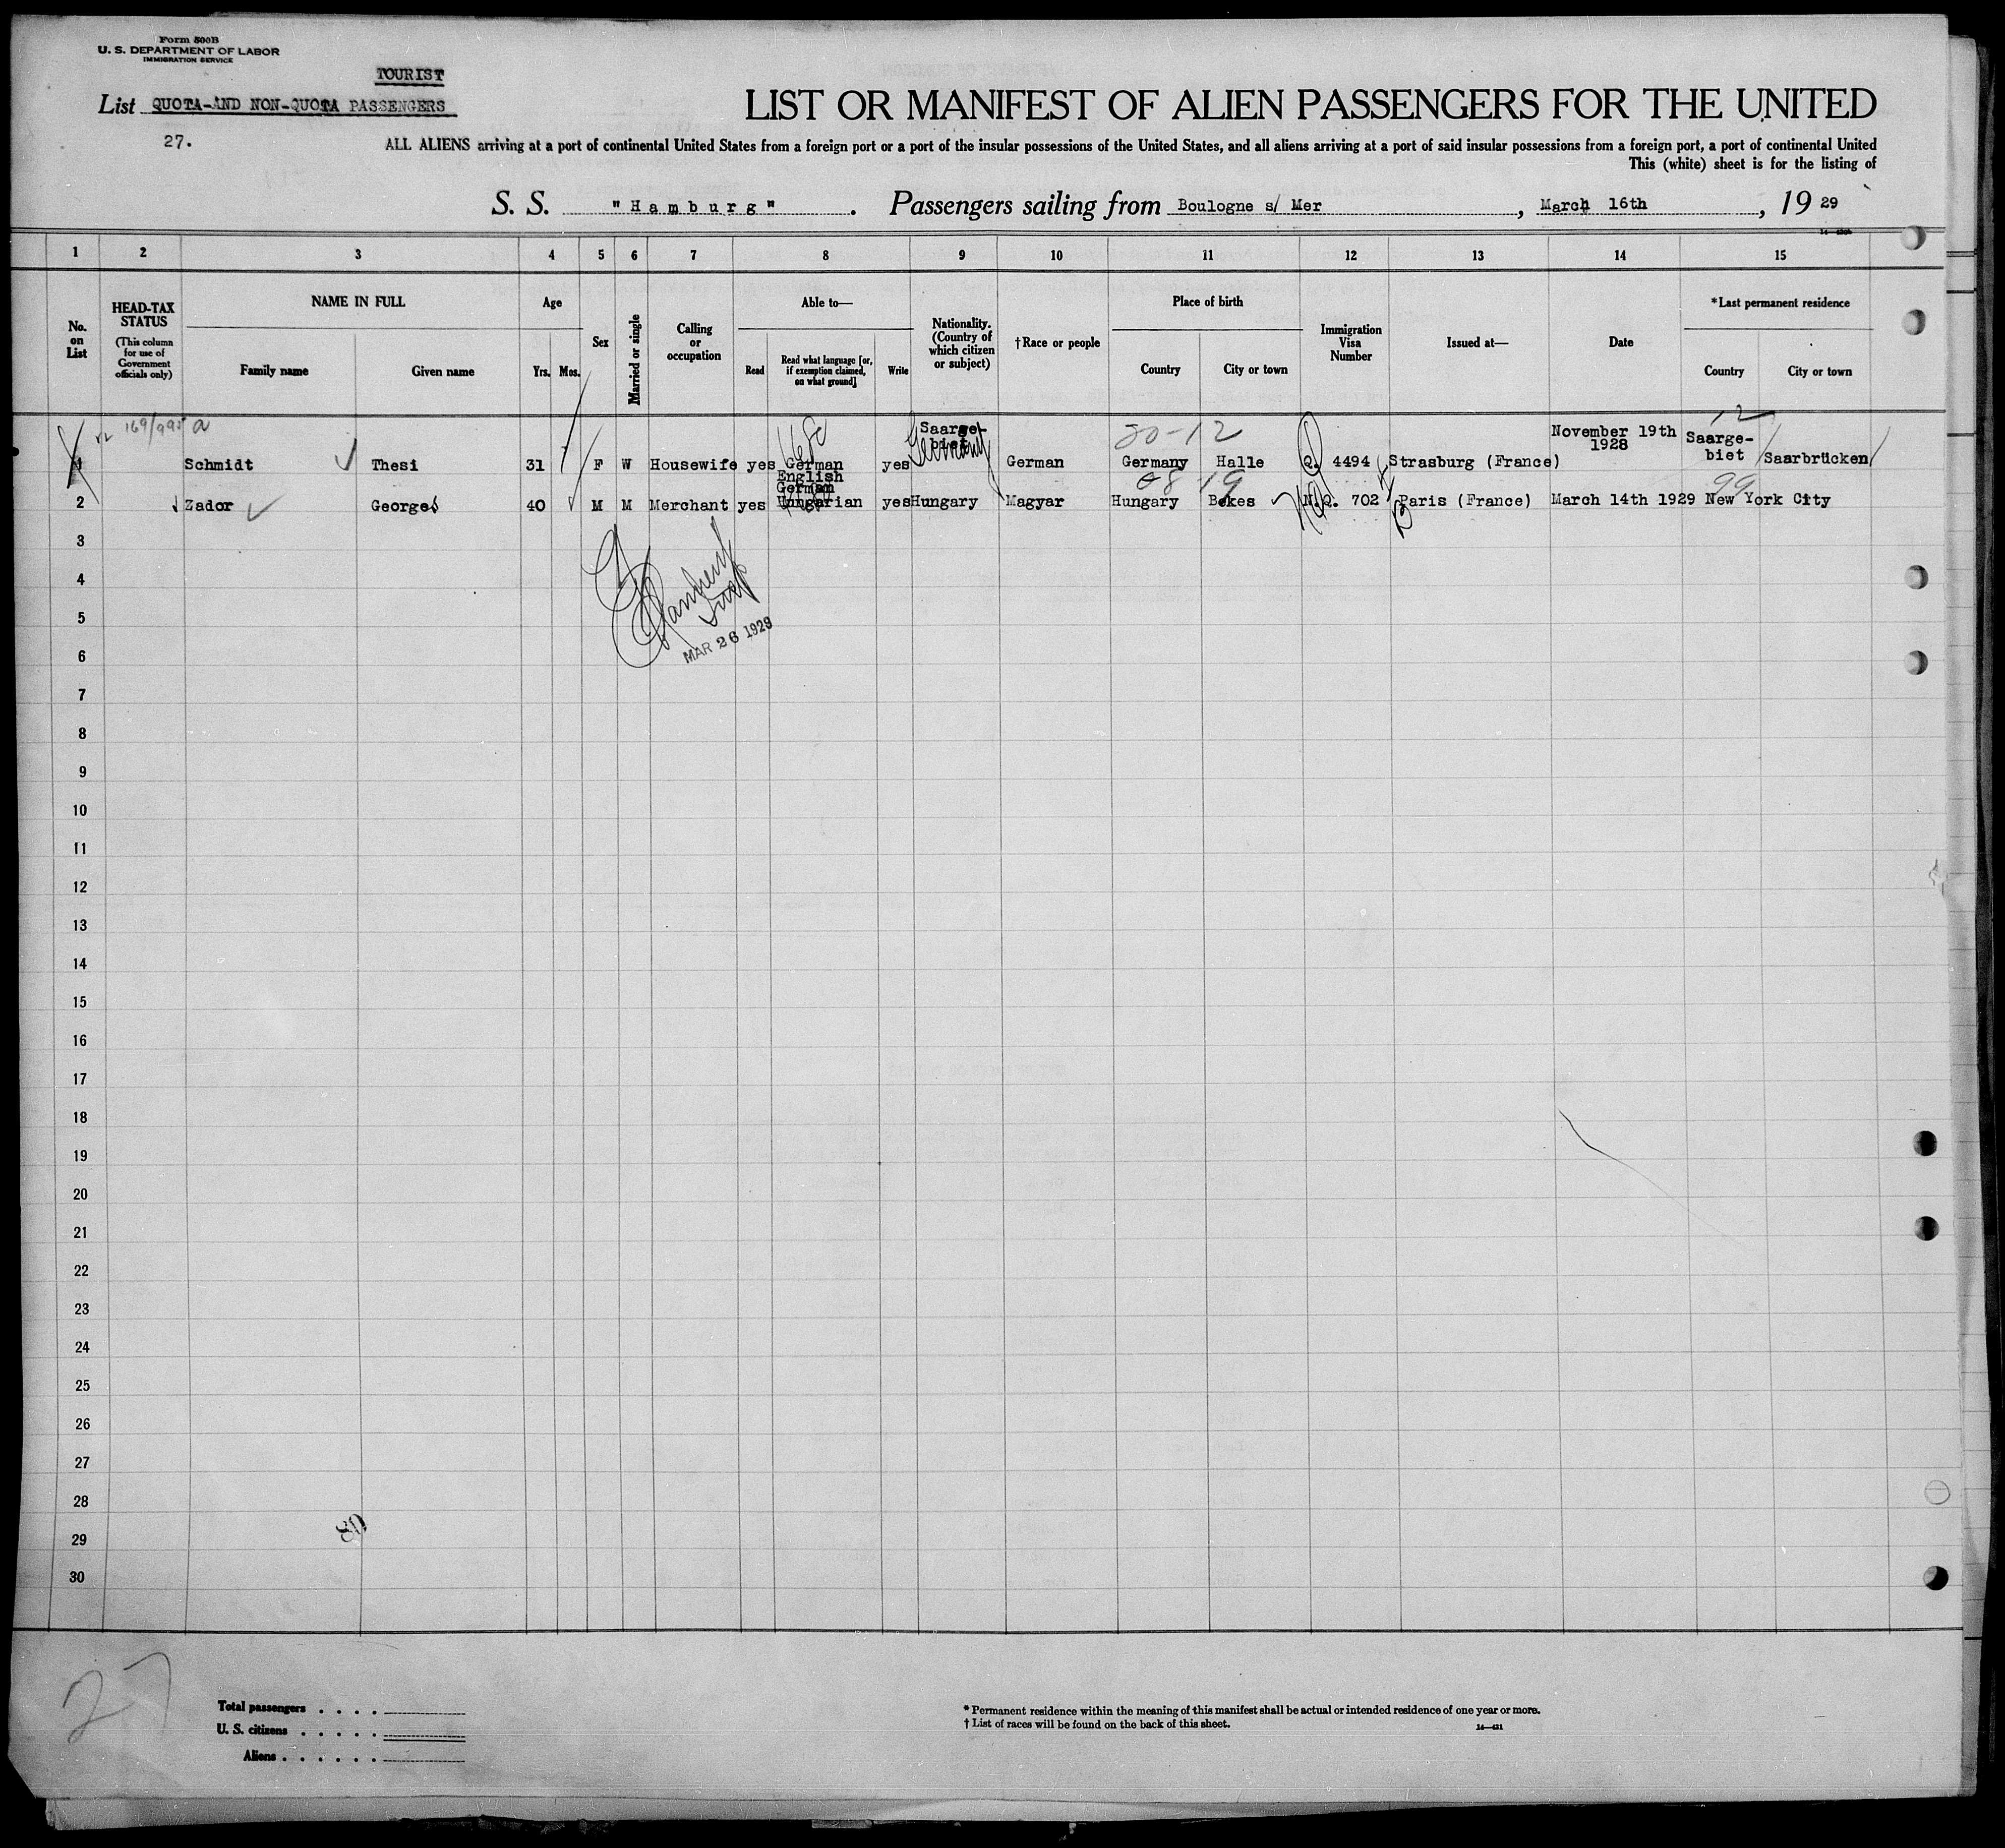 Form 500B
U. S. DEPARTMENT OF LABOR
IMMIGRATION SERVICE
TOURIST
List QUOTA-AND NON-QUOTA PASSENGERS
27.
LIST OR MANIFEST OF ALIEN PASSENGERS FOR THE UNITED
ALL ALIENS arriving at a port of continental United States from a foreign port or a port of the insular possessions of the United States, and all aliens arriving at a port of said insular possessions from a foreign port, a port of continental United
This (white) sheet is for the listing of
S. S. "Hamburg" . Passengers sailing from Boulogne s/ Mer , March 16th , 19 29
1 2 3 4 5 6 7 8 9 10 11 12 13 14 15
No. on List
HEAD-TAX STATUS
(This column for use of Government officials only)
NAME IN FULL
Family name Given name
Age
Yrs. Mos.
Sex
Married or single
Calling or occupation
Able to—
Read
Read what language [or, if exemption claimed, on what ground]
Write
Nationality. (Country of which citizen or subject)
†Race or people
Place of birth
Country City or town
Immigration Visa Number
Issued at—
Date
*Last permanent residence
Country City or town
169/995 a
168c
Saarge-
biet
Germany
20-12
November 19th
1928
12
Saarge-
biet
1 Schmidt Thesi 31 F W Housewife yes German yes German Germany Halle Q. 4494 Strasburg (France) Saarbrücken
English
German
08 19
99
2 Zador George 40 M M Merchant yes Hungarian yes Hungary Magyar Hungary Bekes N.Q. 702 Paris (France) March 14th 1929 New York City
3
4
5
MAR 26 1929
6
7
8
9
10
11
12
13
14
15
16
17
18
19
20
21
22
23
24
25
26
27
28
29
80
30
27
Total passengers . . . .
U. S. citizens . . . . .
Aliens . . . . . .
* Permanent residence within the meaning of this manifest shall be actual or intended residence of one year or more.
† List of races will be found on the back of this sheet.
14—431